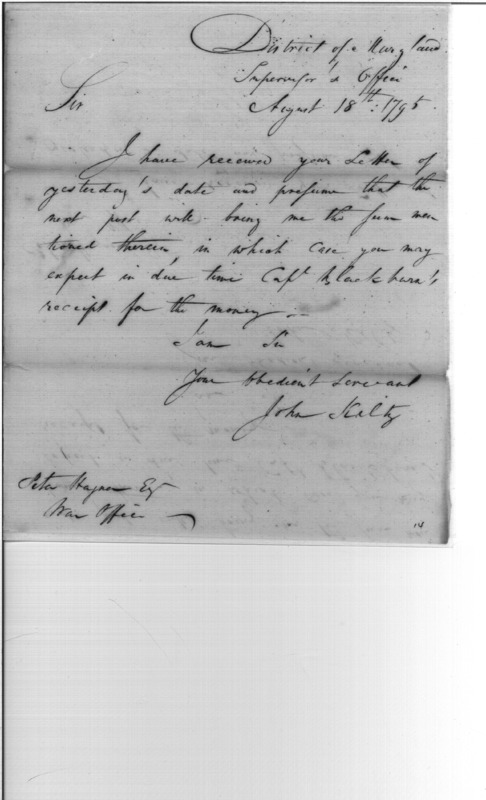 District of Maryland
Supervisor's Office
Sir August 18th: 1795.
I have received your Letter of
yesterday's date and presume that the
next post will bring me the sum men
tioned therein, in which case you may
expect in due time Capt Blackburn's
receipt for the money._
I am Sir
Your Obedient Servant
John Kilty
Peter Hagner Esqr
War Office